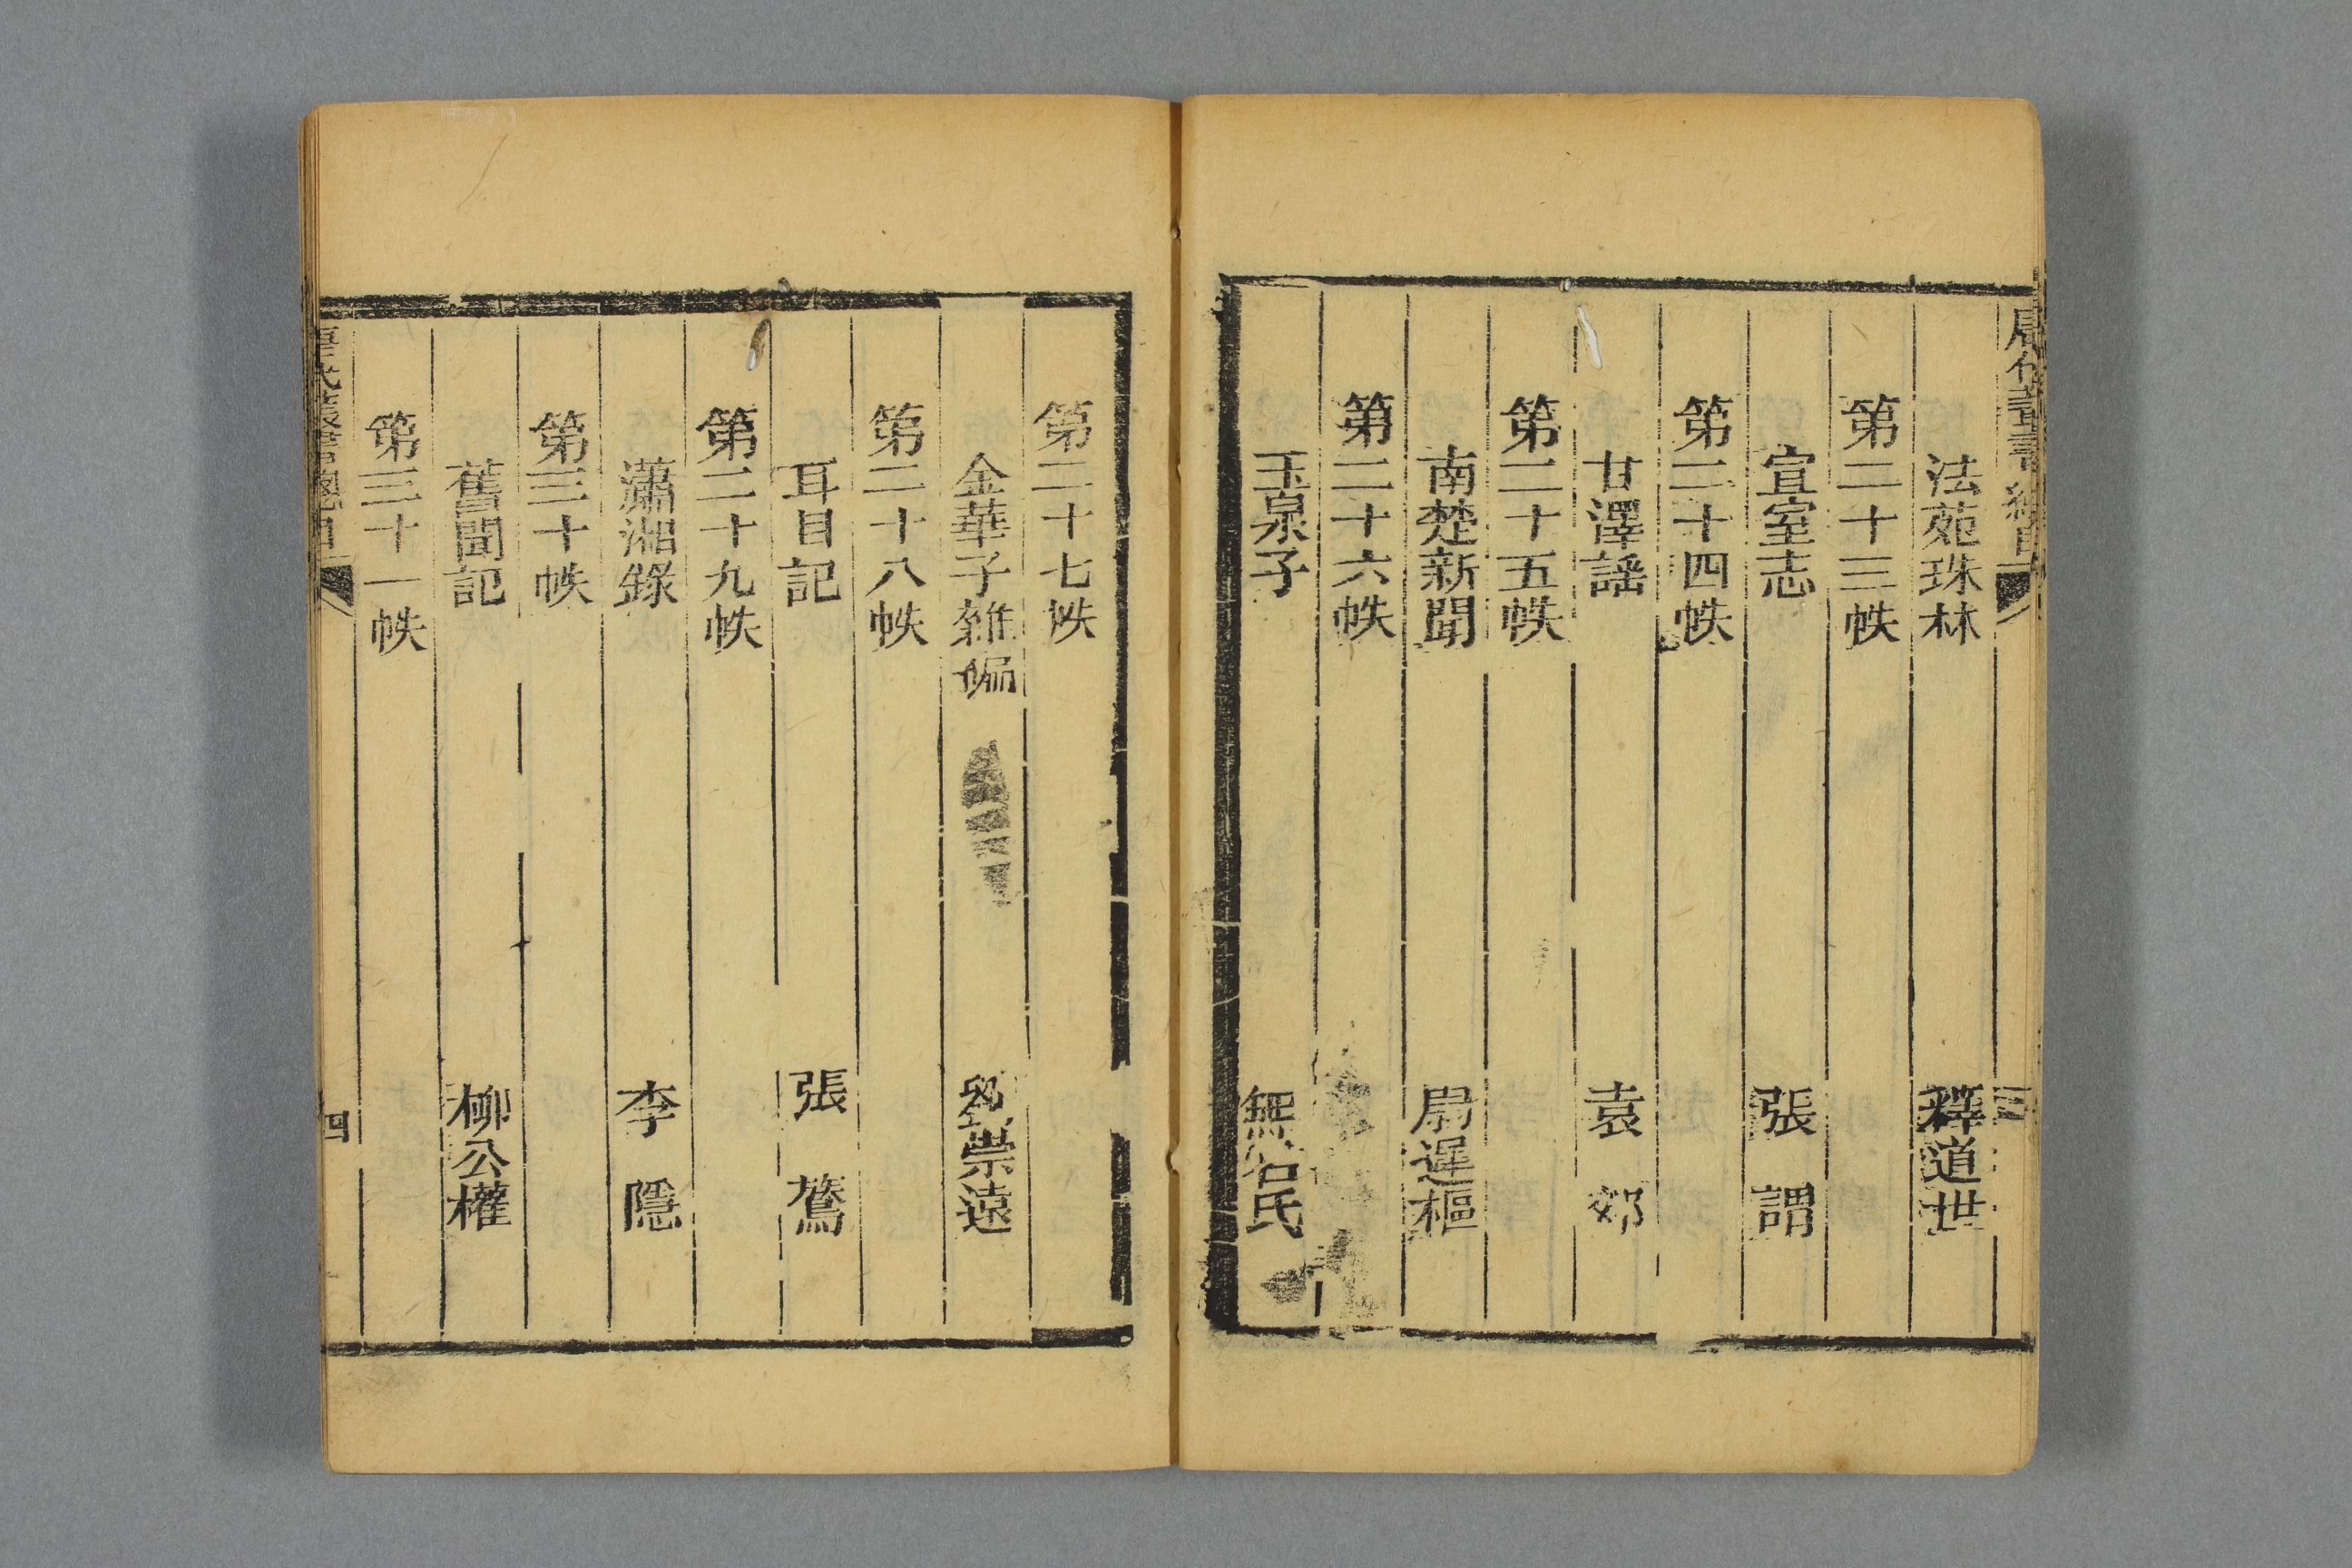 唐代叢書總目
三
法苑珠林 釋道世
第二十三帙
宣室志 張謂
第二十四帙
甘澤謠 袁郊
第二十五帙
南楚新聞 尉遲樞
第二十六帙
玉泉子 無名氏
第二十七帙
金華子雜編 劉崇遠
第二十八帙
耳目記 張鷟
第二十九帙
瀟湘錄 李隱
第三十帙
舊聞記 柳公權
第三十一帙
唐代叢書總目
四